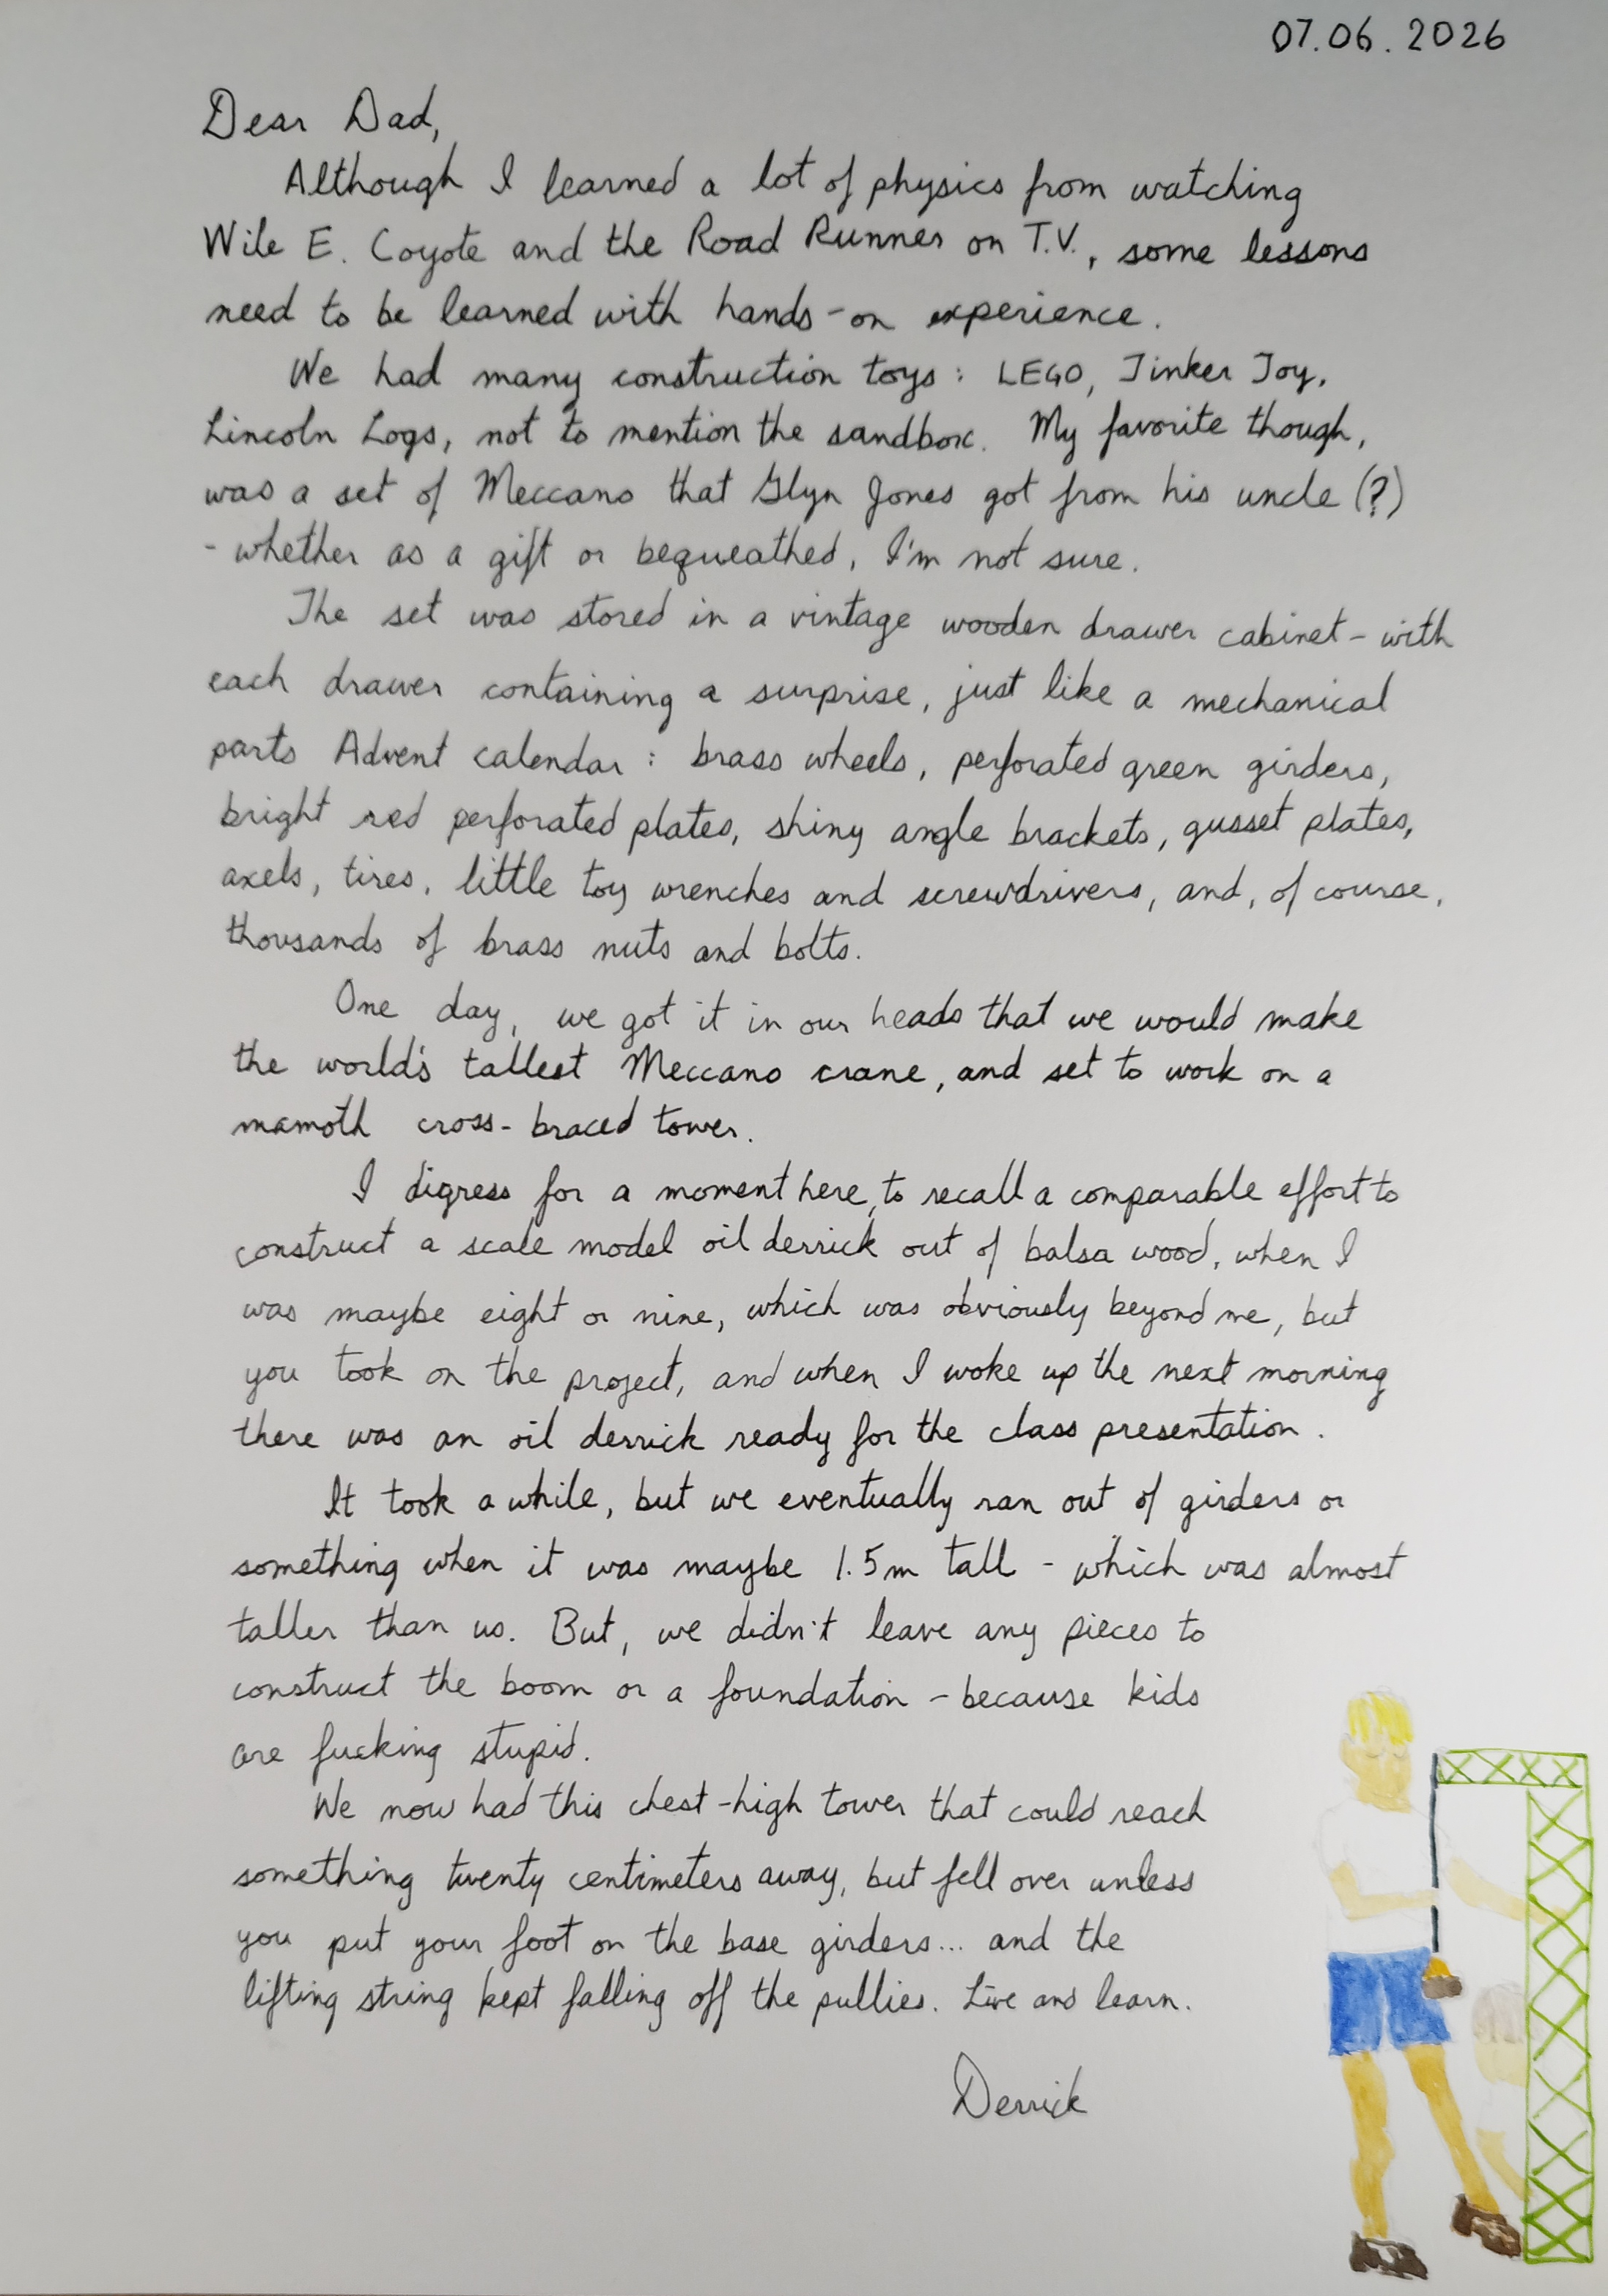 07.06.2026
Dear Dad,
Although I learned a lot of physics from watching
Wile E. Coyote and the Road Runner on T.V., some lessons
need to be learned with hands-on experience.
We had many construction toys: LEGO, Tinker Toy,
Lincoln Logs, not to mention the sandbox. My favorite though,
was a set of Meccano that Glyn Jones got from his uncle (?)
- whether as a gift or bequeathed, I'm not sure.
The set was stored in a vintage wooden drawer cabinet - with
each drawer containing a surprise, just like a mechanical
parts Advent calendar: brass wheels, perforated green girders,
bright red perforated plates, shiny angle brackets, gusset plates,
axels, tires, little toy wrenches and screwdrivers, and, of course,
thousands of brass nuts and bolts.
One day, we got it in our heads that we would make
the world's tallest Meccano crane, and set to work on a
mamoth cross-braced tower.
I digress for a moment here, to recall a comparable effort to
construct a scale model oil derrick out of balsa wood, when I
was maybe eight or nine, which was obviously beyond me, but
you took on the project, and when I woke up the next morning
there was an oil derrick ready for the class presentation.
It took a while, but we eventually ran out of girders or
something when it was maybe 1.5m tall - which was almost
taller than us. But, we didn't leave any pieces to
construct the boom or a foundation - because kids
are fucking stupid.
We now had this chest-high tower that could reach
something twenty centimeters away, but fell over unless
you put your foot on the base girders... and the
lifting string kept falling off the pullies. Live and learn.
Derrick